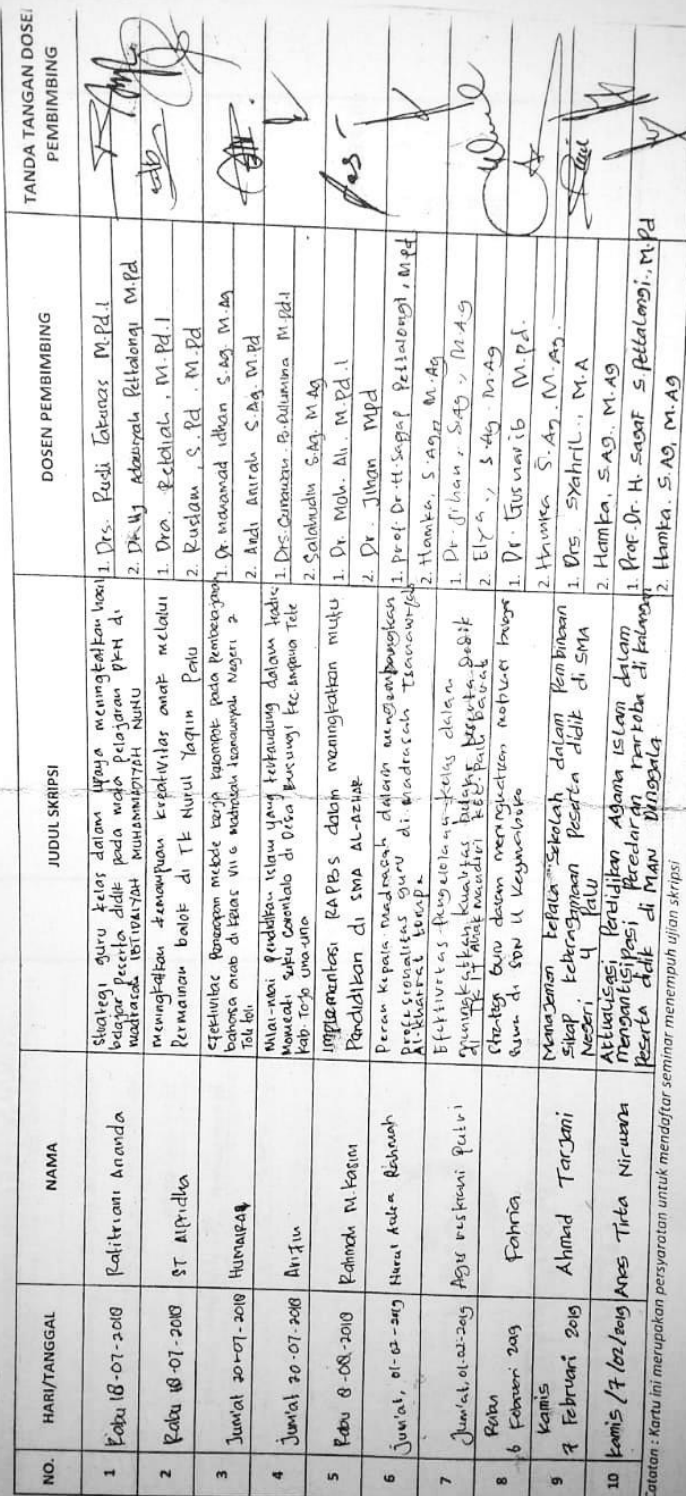 NO.
HARI/TANGGAL
NAMA
JUDUL SKRIPSI
DOSEN PEMBIMBING
TANDA TANGAN DOSE
PEMBIMBING
1
Rabu 18-07-2018
Rafitriani Ananda
Strategi guru kelas dalam upaya meningkatkan hasil
belajar peserta didik pada mata pelajaran PKN di
madrasah IBTIDAIYAH MUHAMMADIYAH NUNU
1. Drs. Rusli Takunas M.Pd.I
2. Dr. Hj Adawiyah Pettalongi M.Pd
2
Rabu 18-07-2018
ST Alfridha
meningkatkan kemampuan kreativitas anak melalui
Permainan balok di TK Nurul Yaqin Palu
1. Dra. Retoliah, M.Pd.I
2. Rustam, S.Pd, M.Pd
3
Jum'at 20-07-2018
HUMAIRAH
efektivitas Penerapan metode kerja kelompok pada Pembelajaran
bahasa arab di kelas VII G Madrasah Tsanawiyah Negeri 2
Toli toli
1. Dr. Mohamad Idhan S.Ag. M.Ag
2. Andi Anirah S.Ag. M.Pd
4
Jum'at 20-07-2018
Arifin
Nilai-nilai Pendidikan Islam yang terkandung dalam tradisi
Momeati Suku Gorontalo di Desa Bunsungi Kec. Ampana Tete
Kab. Tojo Una-una
1. Drs. Gunawan. B. Dulumina M.Pd.I
2. Salahudin S.Ag. M.Ag
5
Rabu 8-08-2018
Rahmah M. Kasim
Implementasi RAPBS dalam meningkatkan mutu
Pendidikan di SMA AL-AZHAR
1. Dr. Moh. Ali. M.Pd.I
2. Dr. Jihan MPd
6
Jum'at, 01-02-2019
Nurul Aulea Rahmah
Peran Kepala madrasah dalam mengembangkan
profesionalitas guru di madrasah Tsanawiyah
Al-khairat
1. Prof Dr. H. Sagaf Pettalongi, M.Pd
2. Hamka, S.Ag., M.Ag
7
Jum'at, 01-02-2019
Agus Putri
Efektivitas Pengelolaan Kelas dalam
meningkatkan kualitas belajar Peserta Didik
di TK IT Anak Mandiri Kec. Palu barat
1. Dr. Jihan, S.Ag., M.Ag
2. Elya., S.Ag. M.Ag
8
Rabu
6 Februari 2019
Fahria
Strategi Guru dalam meningkatkan motivasi belajar
Siswa di SDN 11 Kayumaloko
1. Dr. Gusnarib M.Pd.
2. Hamka S.Ag. M.Ag.
9
Kamis
7 Februari 2019
Ahmad Tarjani
Manajemen Kepala Sekolah dalam Pembinaan
Sikap keberagamaan Peserta didik di SMA
Negeri 4 Palu
1. Drs. Syahril., M.A
2. Hamka, S.Ag. M.Ag
10
Kamis /7/02/2019
Anes Tirta Nirwana
Aktualisasi Pendidikan Agama Islam dalam
mengantisipasi Peredaran narkoba di kalangan
Peserta didik di MAN Donggala
1. Prof. Dr. H. Sagaf S. Pettalongi., M.Pd
2. Hamka. S.Ag, M.Ag
Catatan : Kartu ini merupakan persyaratan untuk mendaftar seminar menempuh ujian skripsi